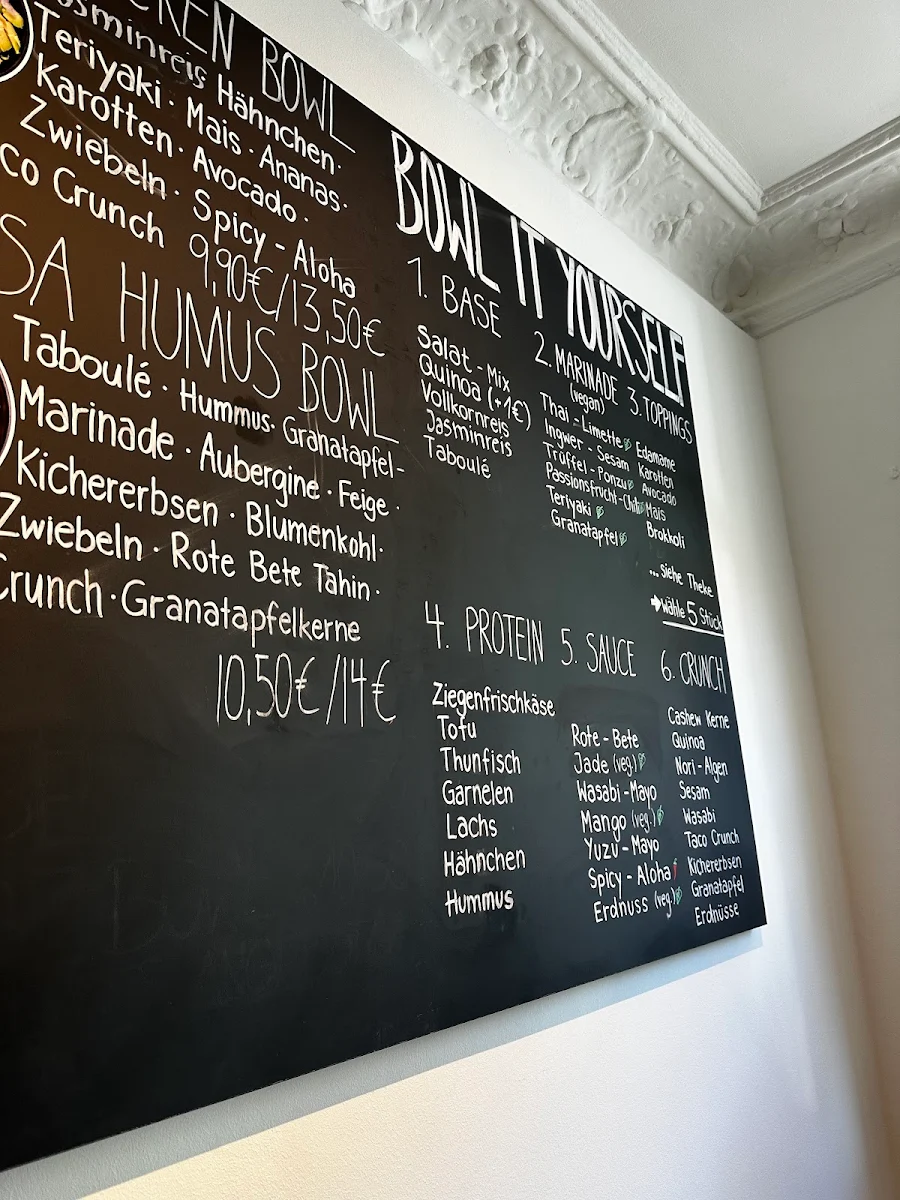 BOWL
Jasminreis Hähnchen ·
Teriyaki · Mais · Ananas ·
Karotten · Avocado ·
Zwiebeln · Spicy - Aloha
Crunch
9,90€/13,50€
HUMUS BOWL
Taboulé · Hummus · Granatapfel-
Marinade · Aubergine · Feige ·
Kichererbsen · Blumenkohl ·
Zwiebeln · Rote Bete Tahin ·
Crunch · Granatapfelkerne
10,50€/14€
BOWL IT YOURSELF
1. BASE
Salat - Mix
Quinoa (+1€)
Vollkornreis
Jasminreis
Taboulé
2. MARINADE
(vegan)
Thai - Limette
Ingwer - Sesam
Trüffel - Ponzu
Passionsfrucht - Chili
Teriyaki
Granatapfel
3. TOPPINGS
Edamame
Karotten
Avocado
Mais
Brokkoli
... siehe Theke
➔ wähle 5 Stück
4. PROTEIN
Ziegenfrischkäse
Tofu
Thunfisch
Garnelen
Lachs
Hähnchen
Hummus
5. SAUCE
Rote - Bete
Jade (veg.)
Wasabi - Mayo
Mango (veg.)
Yuzu - Mayo
Spicy - Aloha
Erdnuss (veg.)
6. CRUNCH
Cashew Kerne
Quinoa
Nori - Algen
Sesam
Wasabi
Taco Crunch
Kichererbsen
Granatapfel
Erdnüsse